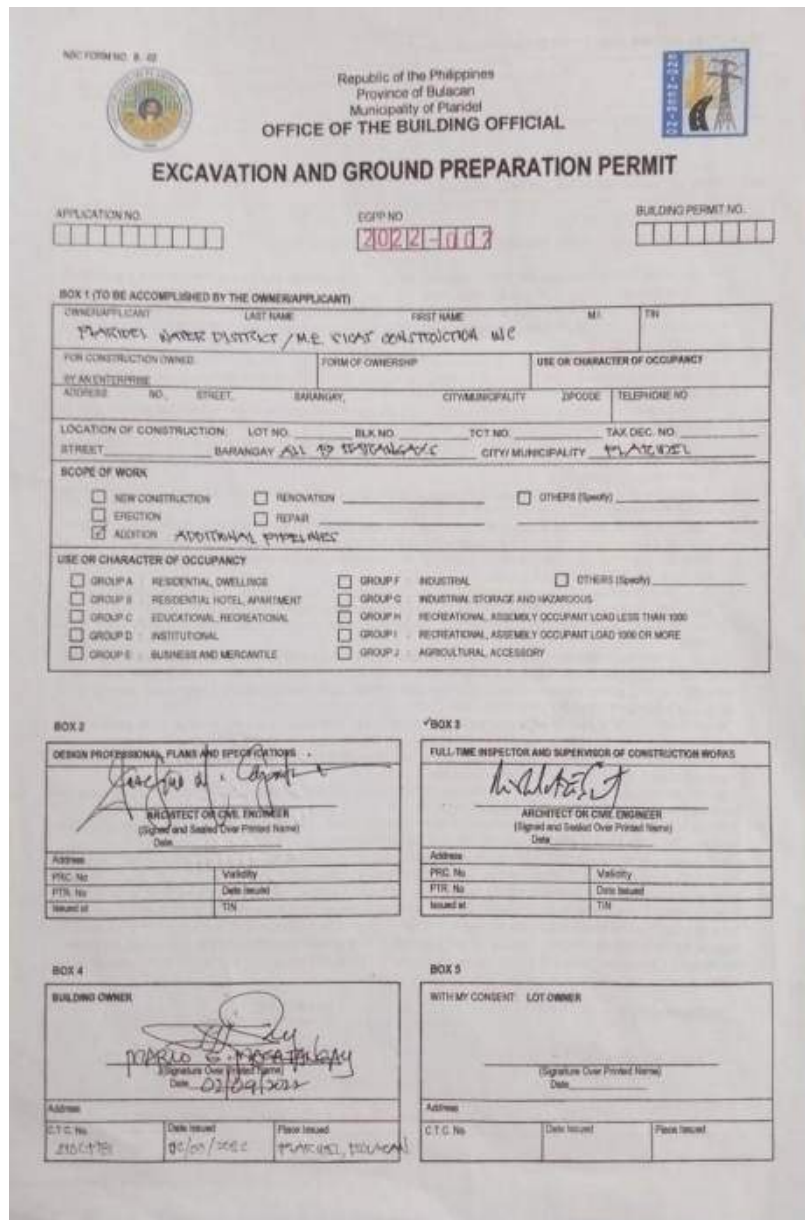 NBC FORM NO. B - 02
Republic of the Philippines
Province of Bulacan
Municipality of Plaridel
OFFICE OF THE BUILDING OFFICIAL
EXCAVATION AND GROUND PREPARATION PERMIT
APPLICATION NO.
EGPP NO
BUILDING PERMIT NO.
2022-007
BOX 1 (TO BE ACCOMPLISHED BY THE OWNER/APPLICANT)
OWNER/APPLICANT LAST NAME FIRST NAME M.I. TIN
PLARIDEL WATER DISTRICT / M.E. SICAT CONSTRUCTION INC
FOR CONSTRUCTION OWNED FORM OF OWNERSHIP USE OR CHARACTER OF OCCUPANCY
BY AN ENTERPRISE
ADDRESS NO., STREET, BARANGAY, CITY/MUNICIPALITY ZIPCODE TELEPHONE NO
LOCATION OF CONSTRUCTION: LOT NO. BLK NO. TCT NO. TAX DEC. NO.
STREET BARANGAY ALL 19 BARANGAYS CITY/ MUNICIPALITY PLARIDEL
SCOPE OF WORK
NEW CONSTRUCTION RENOVATION OTHERS (Specify)
ERECTION REPAIR
ADDITION ADDITIONAL PIPELINES
USE OR CHARACTER OF OCCUPANCY
GROUP A : RESIDENTIAL, DWELLINGS GROUP F : INDUSTRIAL OTHERS (Specify)
GROUP B : RESIDENTIAL HOTEL, APARTMENT GROUP G : INDUSTRIAL STORAGE AND HAZARDOUS
GROUP C : EDUCATIONAL, RECREATIONAL GROUP H : RECREATIONAL, ASSEMBLY OCCUPANT LOAD LESS THAN 1000
GROUP D : INSTITUTIONAL GROUP I : RECREATIONAL, ASSEMBLY OCCUPANT LOAD 1000 OR MORE
GROUP E : BUSINESS AND MERCANTILE GROUP J : AGRICULTURAL, ACCESSORY
BOX 2
DESIGN PROFESSIONAL, PLANS AND SPECIFICATIONS
ARCHITECT OR CIVIL ENGINEER
(Signed and Sealed Over Printed Name)
Date
Address
PRC. No Validity
PTR. No Date Issued
Issued at TIN
BOX 3
FULL-TIME INSPECTOR AND SUPERVISOR OF CONSTRUCTION WORKS
ARCHITECT OR CIVIL ENGINEER
(Signed and Sealed Over Printed Name)
Date
Address
PRC. No Validity
PTR. No Date Issued
Issued at TIN
BOX 4
BUILDING OWNER
MARIO G. MAGATANGAY
(Signature Over Printed Name)
Date 02/09/2022
Address
C.T.C. No. Date Issued Place Issued
PLARIDEL, BULACAN
BOX 5
WITH MY CONSENT: LOT OWNER
(Signature Over Printed Name)
Date
Address
C.T.C. No. Date Issued Place Issued